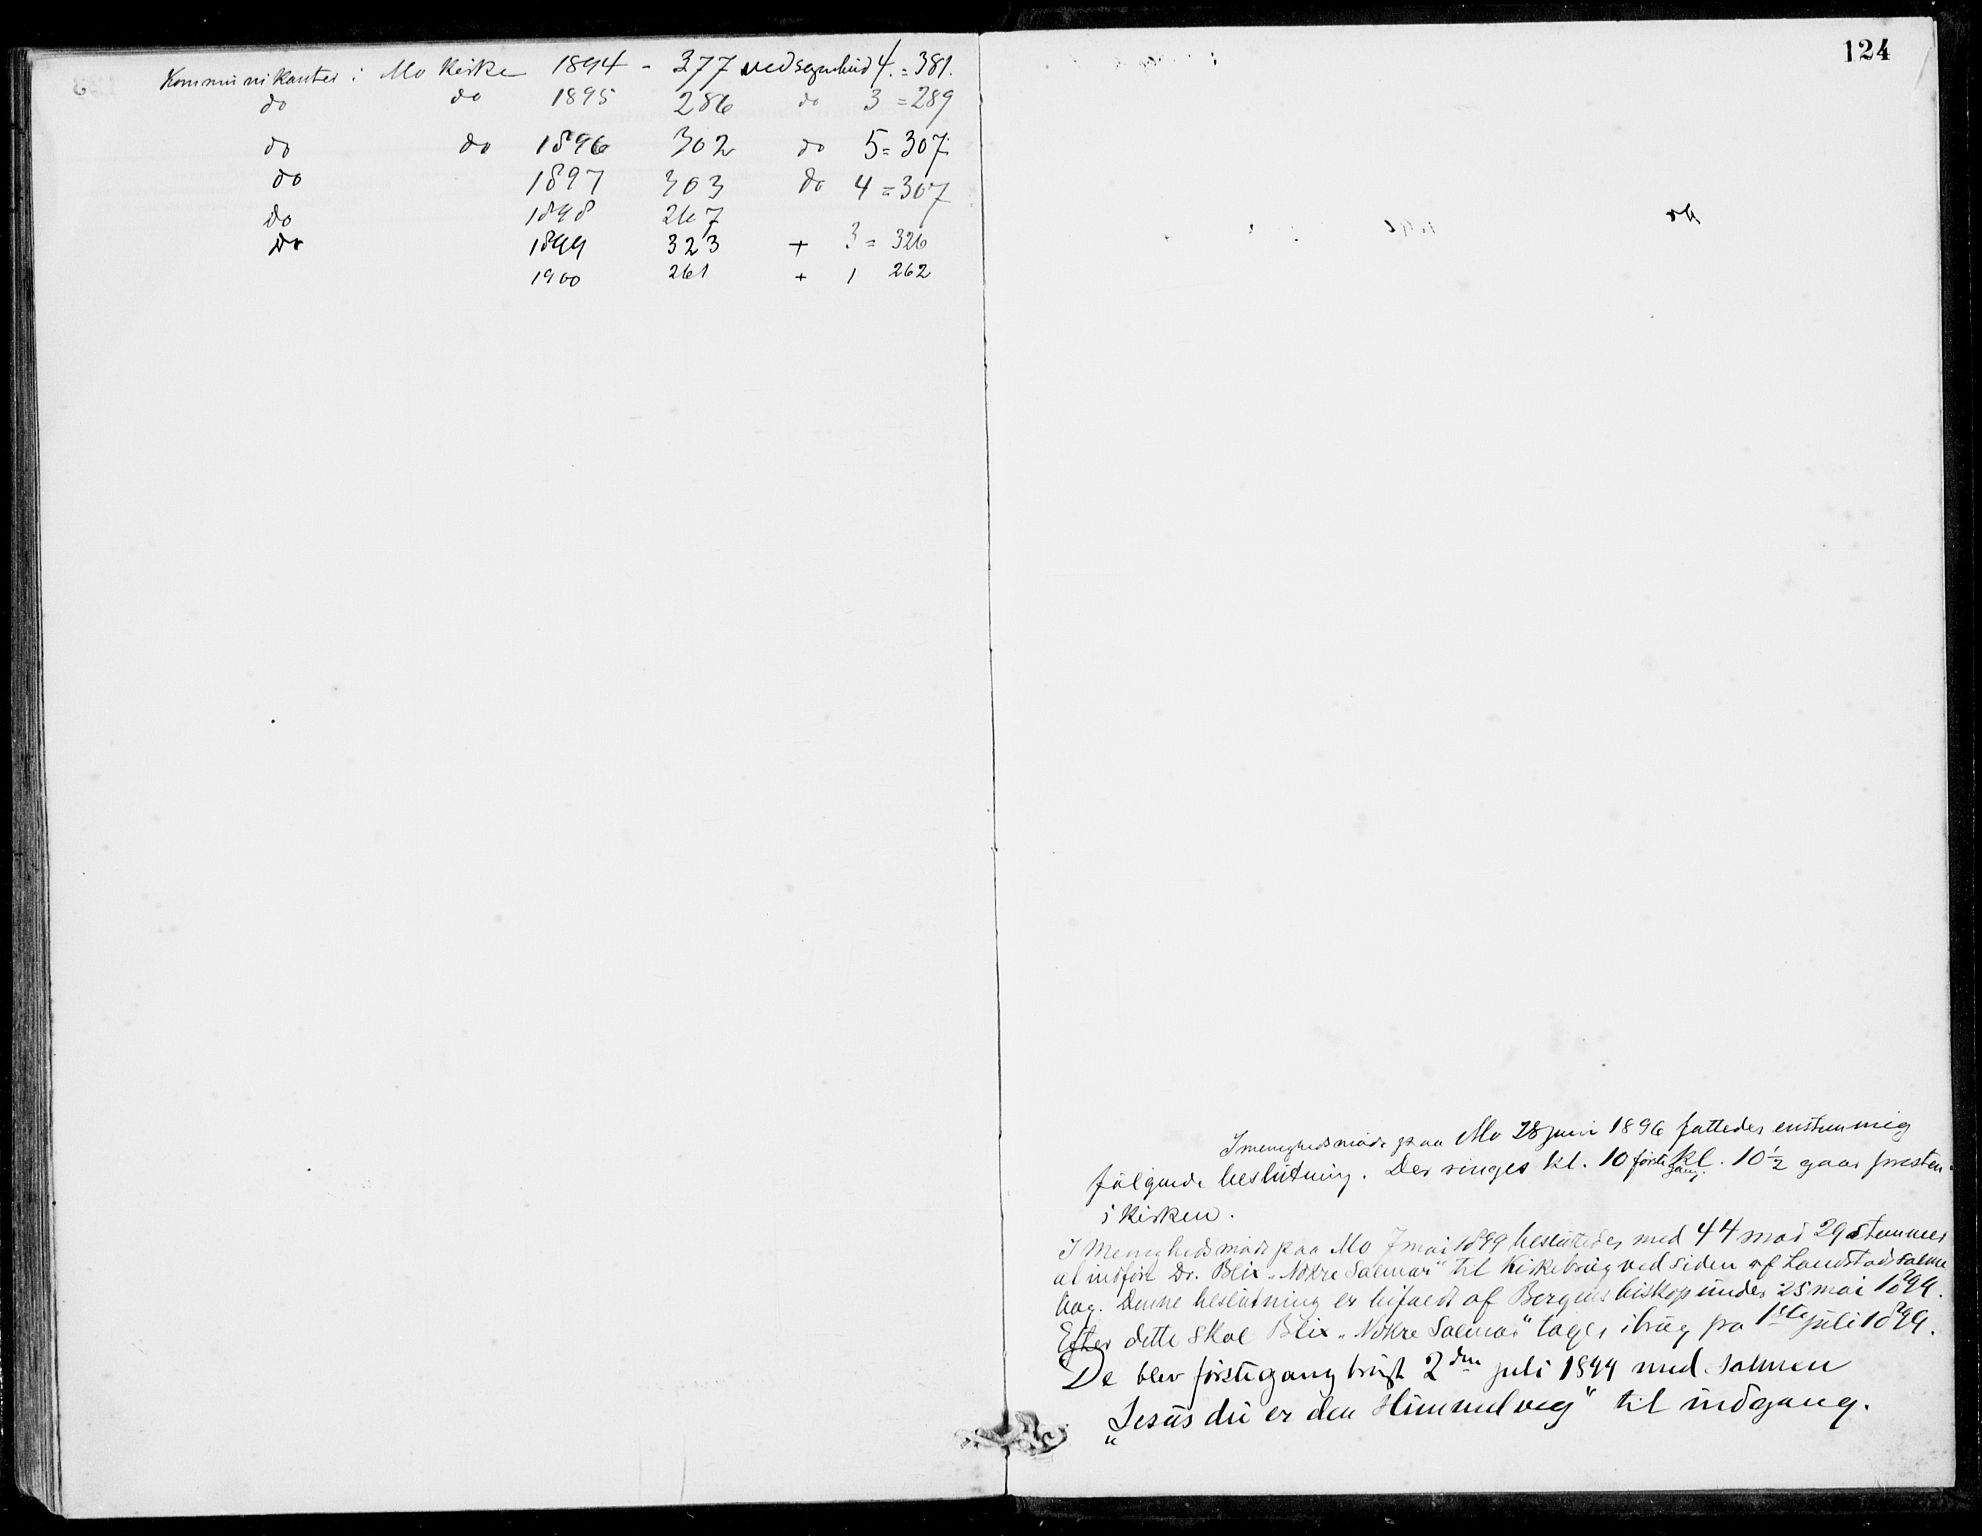 Kommunikanter i Mo Kirke 1894 - 377 ved sognebud 4. = 381.
do do 1895 286 do 3 = 289
do do 1896 302 do 5 = 307.
do 1897 303 do 4 = 307
Do 1898 267
Do 1899 323 + 3 = 326
1900 261 + 1 262
124
I menighedsmøde paa Mo 28 juni 1896 fattedes enstemmig
følgende beslutning. Der ringes kl. 10 første gang. Kl. 10 1/2 gaar presten
i Kirken.
I Menighedsmøde paa Mo 7 mai 1899 besluttedes med 44 mod 29 stemmer
at indføre Dr. Blix „Nokre Salmar" til Kirkebrug ved siden af Landstads salme
bog. Denne beslutning er bifaldt af Bergens biskop under 25 mai 1899.
Efter dette skal Blix „Nokre Salmar" tages i brug fra 1ste juli 1899.
De blev første gang brugt 2den juli 1899 med salmen
„Jesus du er den Himmelveg" til indgang.